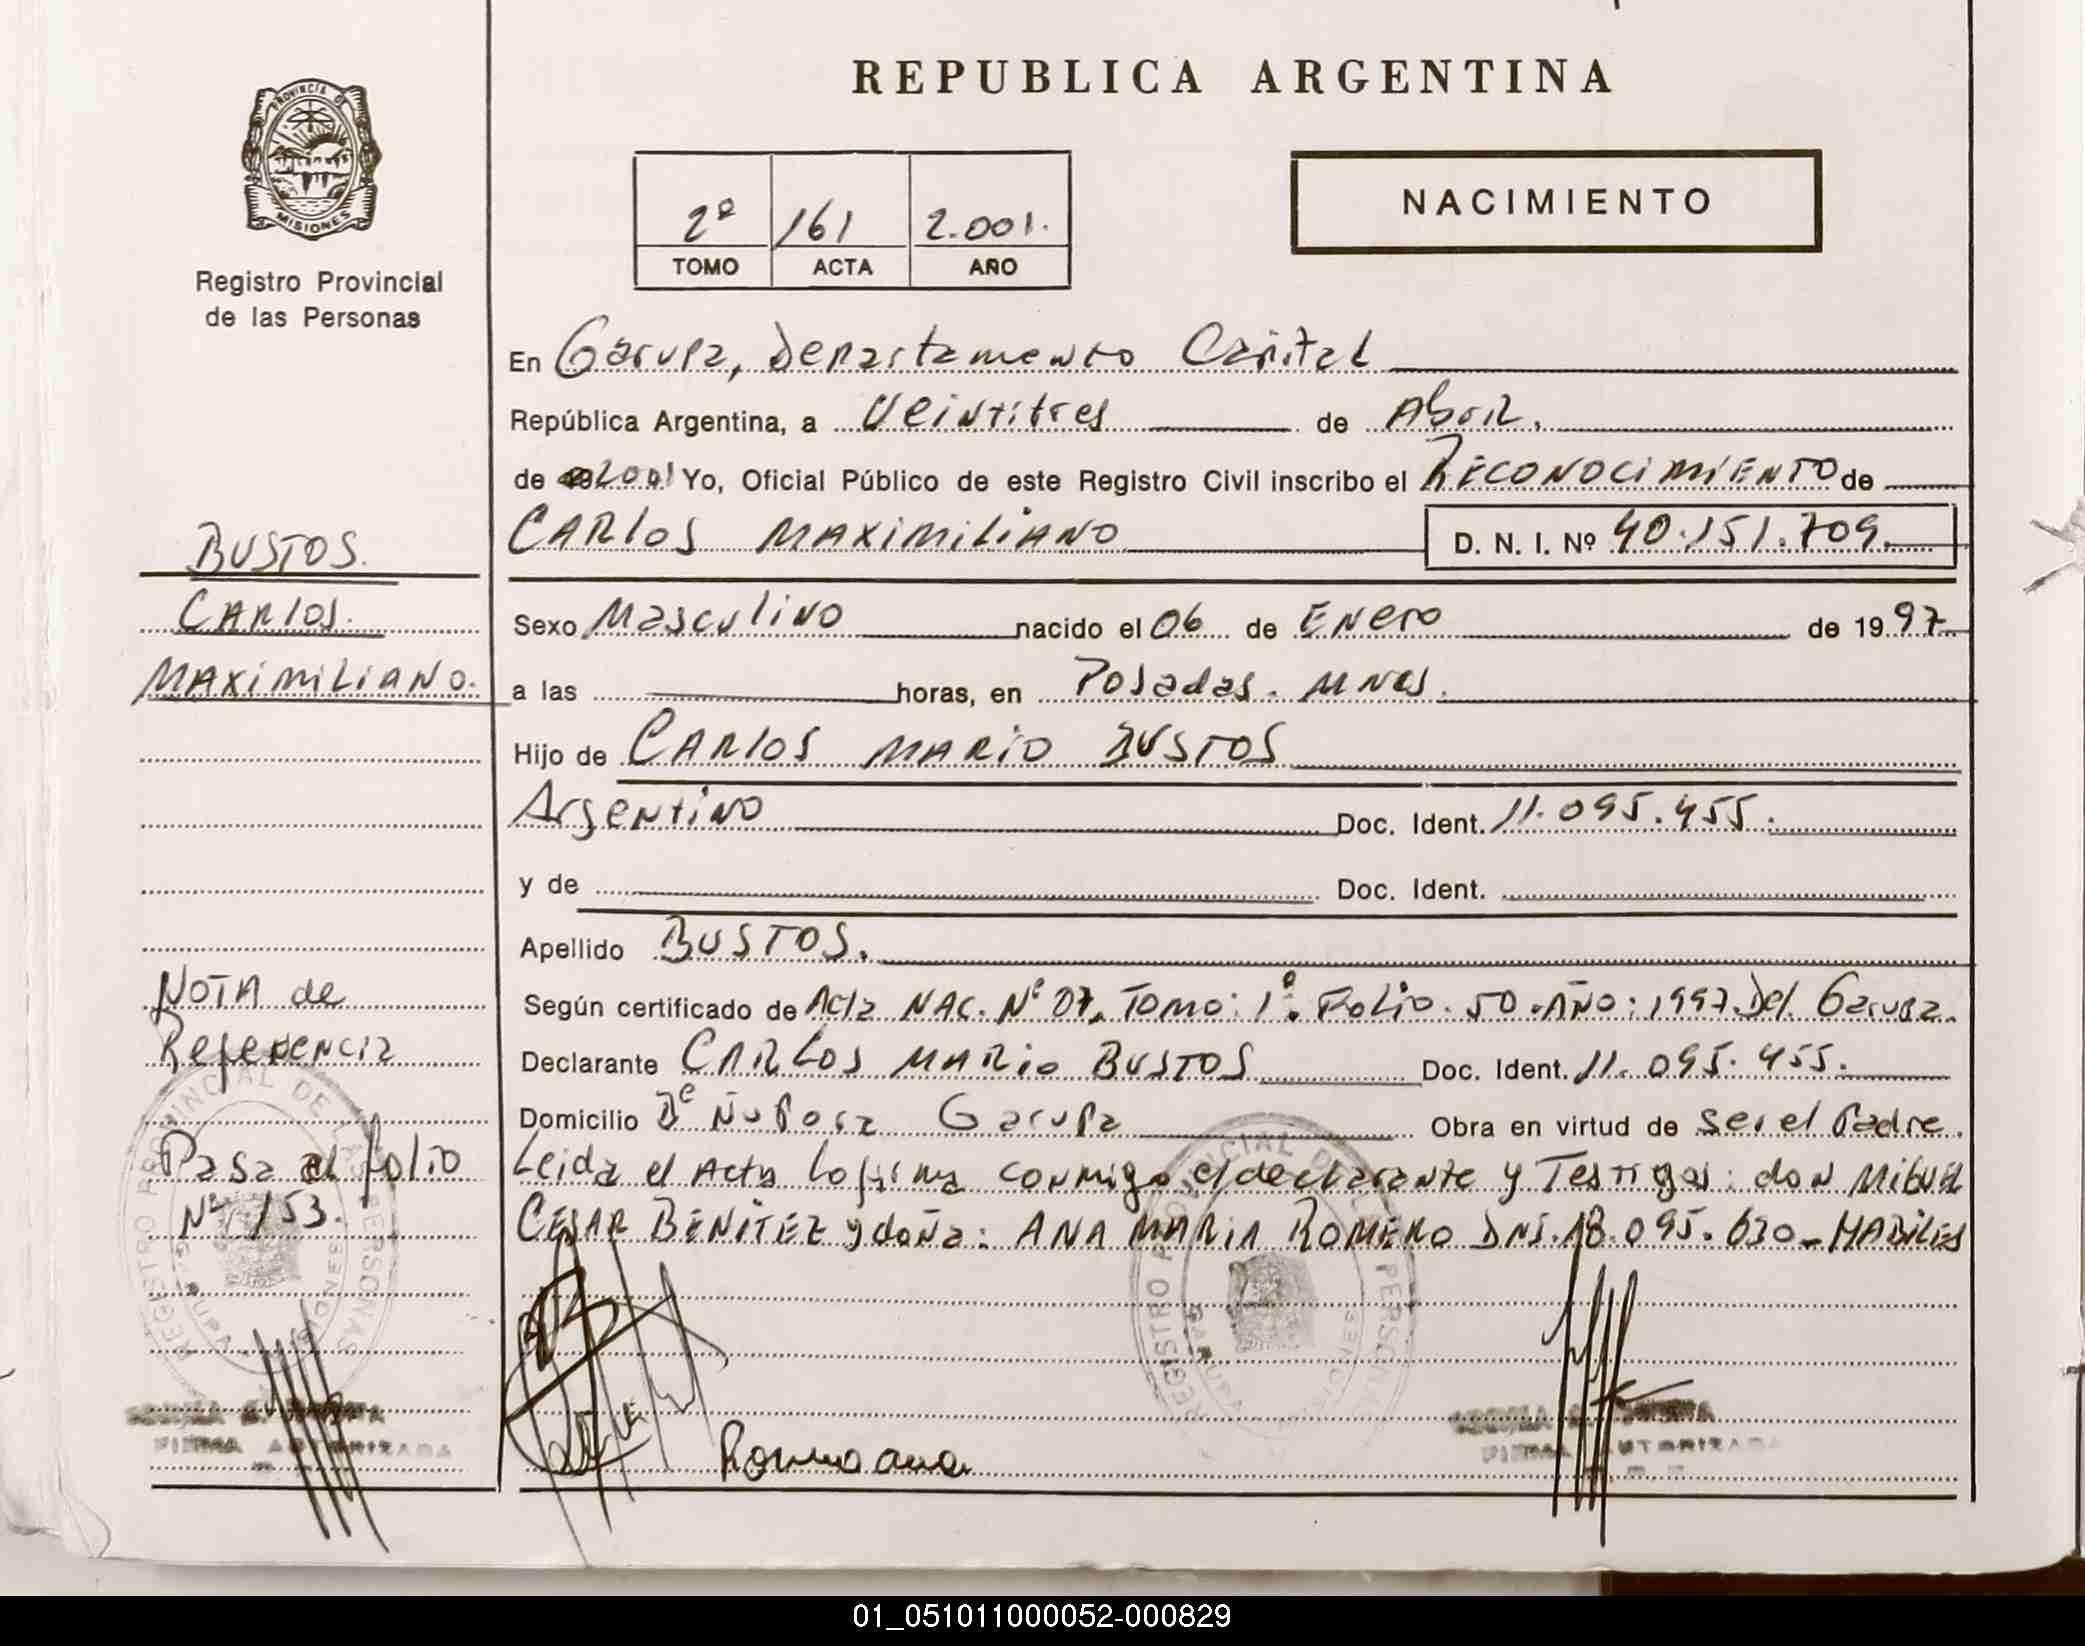 REPUBLICA ARGENTINA
PROVINCIA DE
MISIONES
Registro Provincial
de las Personas
2º 161 2.001.
TOMO ACTA AÑO
NACIMIENTO
En Garupa, Departamento Capital
República Argentina, a Veintitres de Abril.
de 2001 Yo, Oficial Público de este Registro Civil inscribo el RECONOCIMIENTO de
CARLOS MAXIMILIANO D. N. I. Nº 40.151.709.
Sexo Masculino nacido el 06 de Enero de 1997
a las horas, en Posadas. Mnes.
Hijo de CARLOS MARIO BUSTOS
Argentino Doc. Ident. 11.095.455.
y de Doc. Ident.
Apellido BUSTOS.
Según certificado de Acta NAC. Nº 07, Tomo: 1º. Folio. 50. AÑO: 1997. Del. Garupa.
Declarante CARLOS MARIO BUSTOS Doc. Ident. 11.095.455.
Domicilio Bº Ñu Pora Garupa Obra en virtud de ser el Padre.
Leida el Acta la firma conmigo el declarante y Testigos: don MIGUEL
CESAR BENITEZ y doña: ANA MARIA ROMERO DNI. 18.095.630 - HABILES
Romero ana
BUSTOS.
CARLOS.
MAXIMILIANO.
NOTA de
Referencia
Pasa al folio
Nº 153.
REGISTRO PROVINCIAL DE LAS PERSONAS
GARUPA
MISIONES
FIRMA AUTORIZADA
REGISTRO PROVINCIAL DE LAS PERSONAS
GARUPA
MISIONES
FIRMA AUTORIZADA
01_051011000052-000829